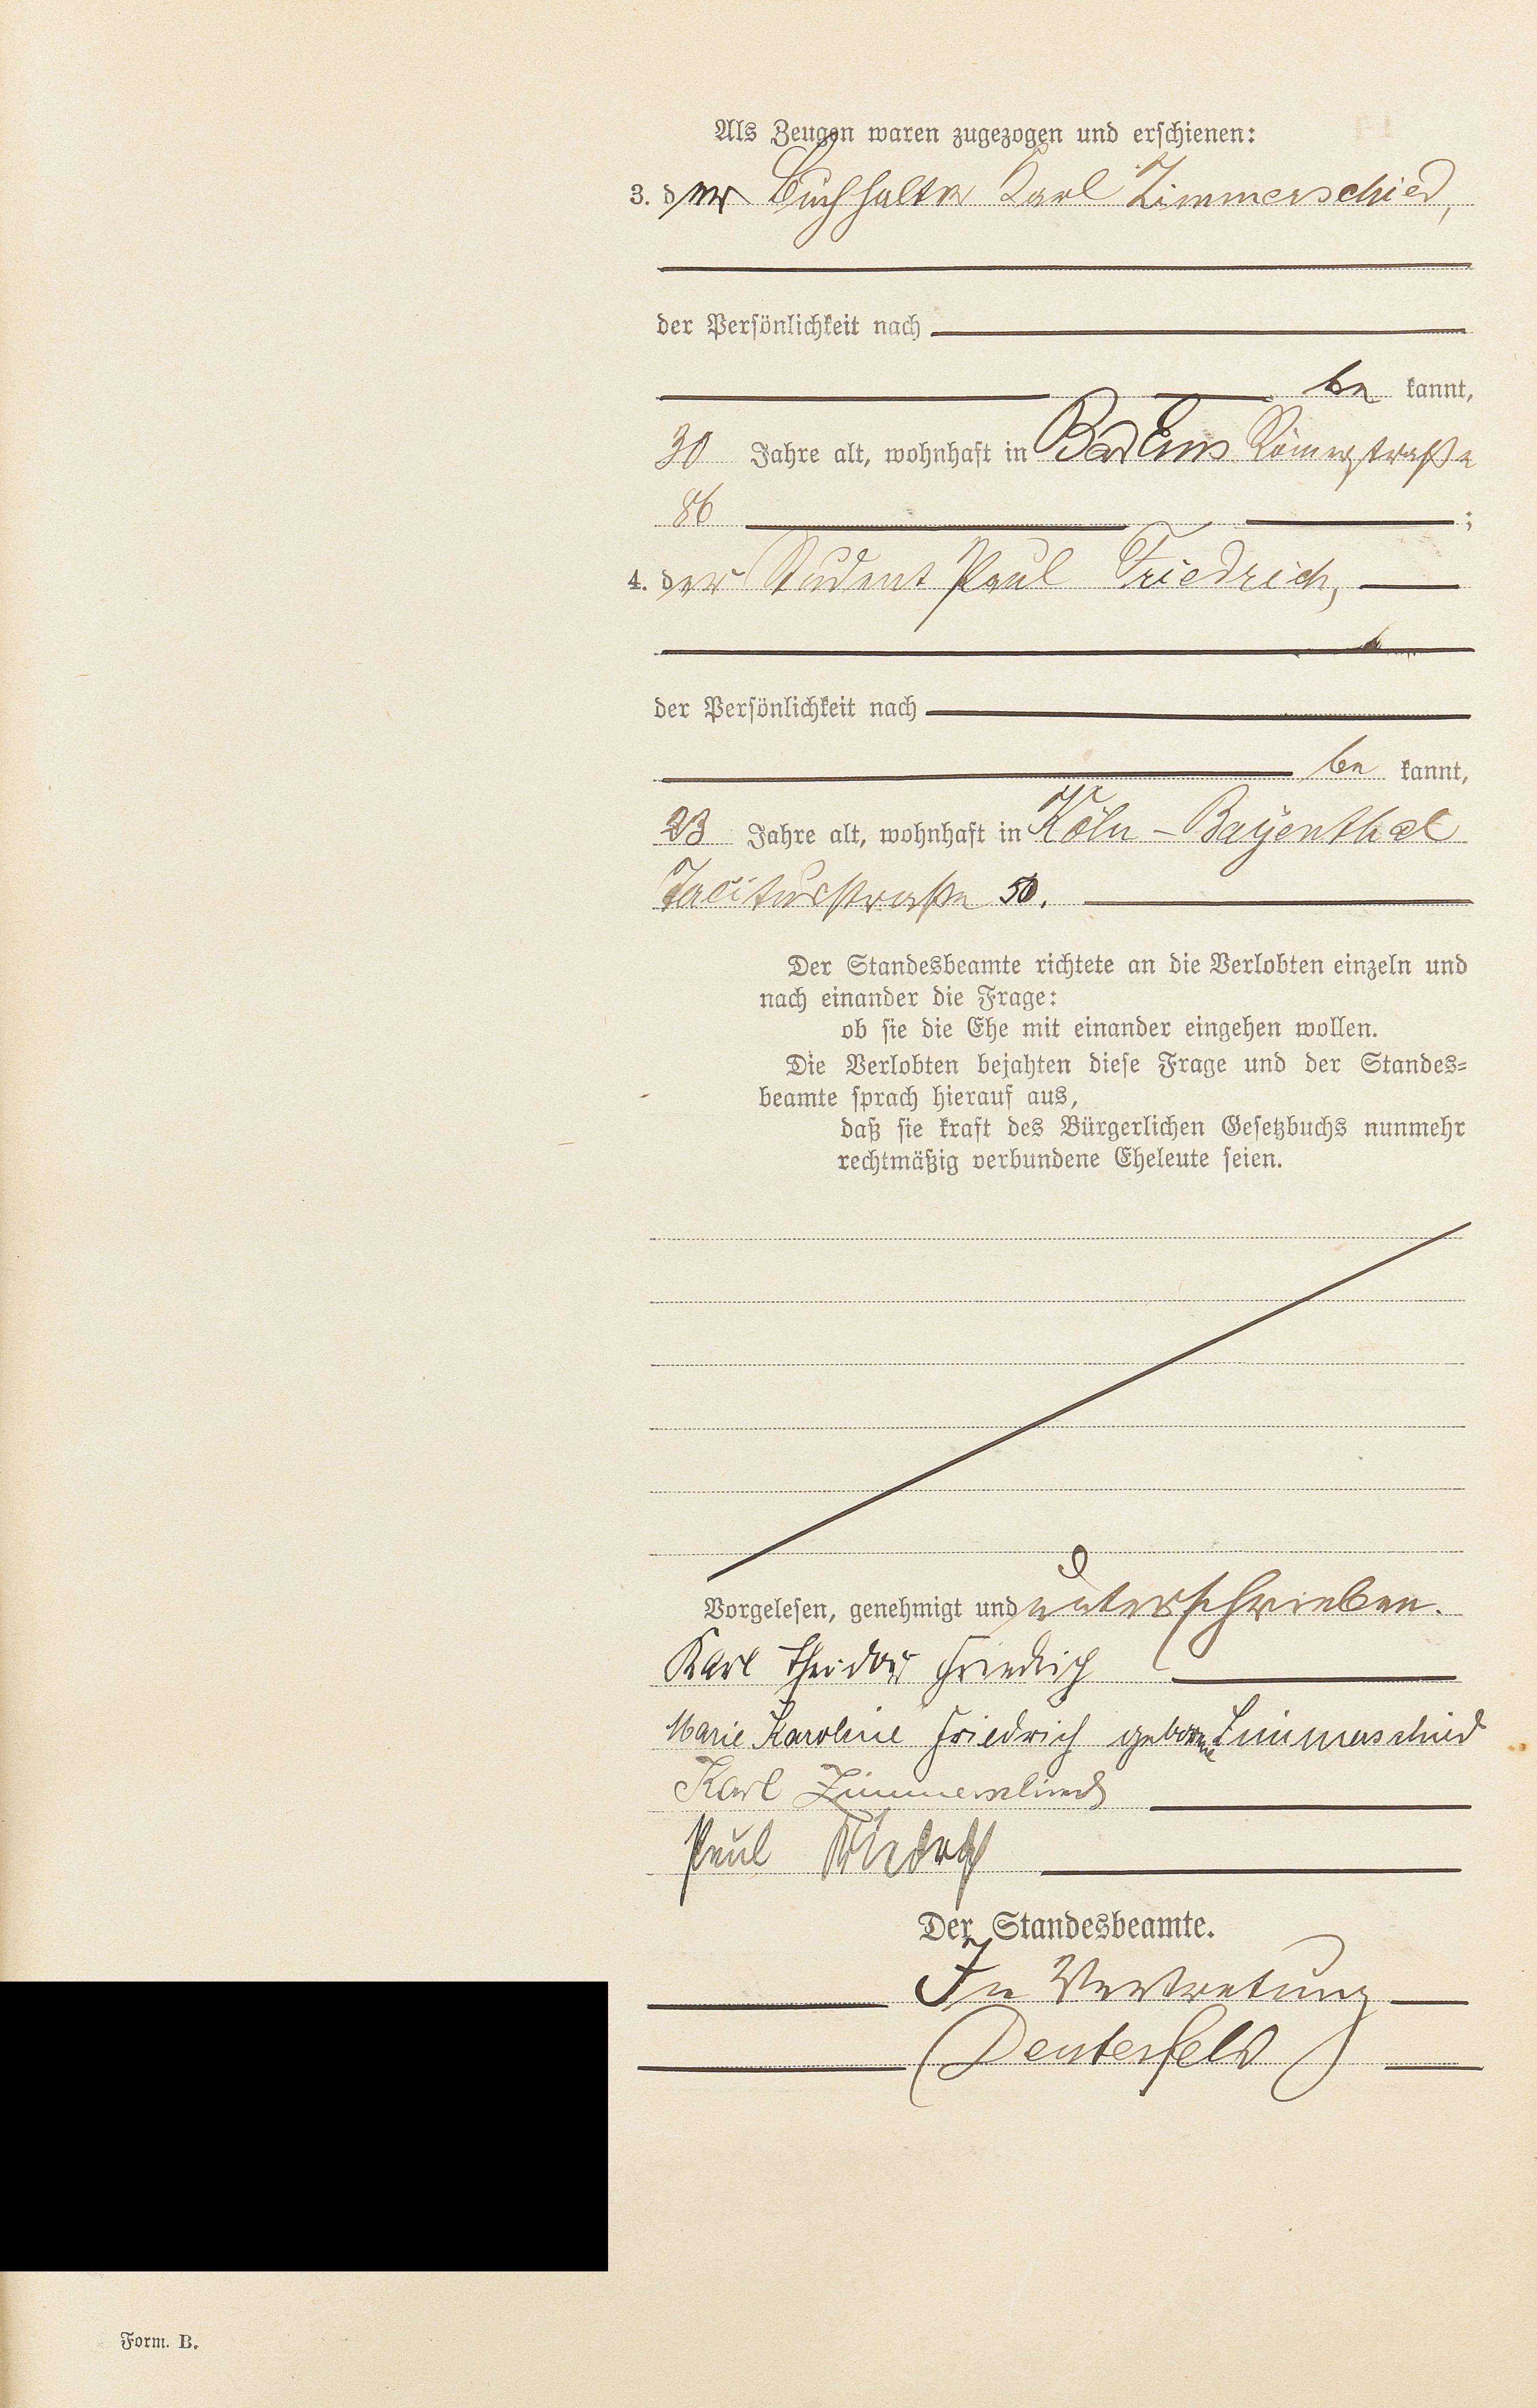 Als Zeugen waren zugezogen und erschienen:
3. der Buchhalter Karl Zimmerschied,
der Persönlichkeit nach
be kannt,
30 Jahre alt, wohnhaft in Bad Ems Römerstraße
86 ;
4. der Student Paul Friedrich,
der Persönlichkeit nach
be kannt,
23 Jahre alt, wohnhaft in Köln - Bayenthal
Tacitusstraße 50.
Der Standesbeamte richtete an die Verlobten einzeln und
nach einander die Frage:
ob sie die Ehe mit einander eingehen wollen.
Die Verlobten bejahten diese Frage und der Standes=
beamte sprach hierauf aus,
daß sie kraft des Bürgerlichen Gesetzbuchs nunmehr
rechtmäßig verbundene Eheleute seien.
Vorgelesen, genehmigt und unterschrieben.
Karl Theodor Friedrich
Marie Karoline Friedrich geborene Zimmerschied
Karl Zimmerschied
Paul Friedrich
Der Standesbeamte.
In Vertretung
Deutesfeld
Form. B.